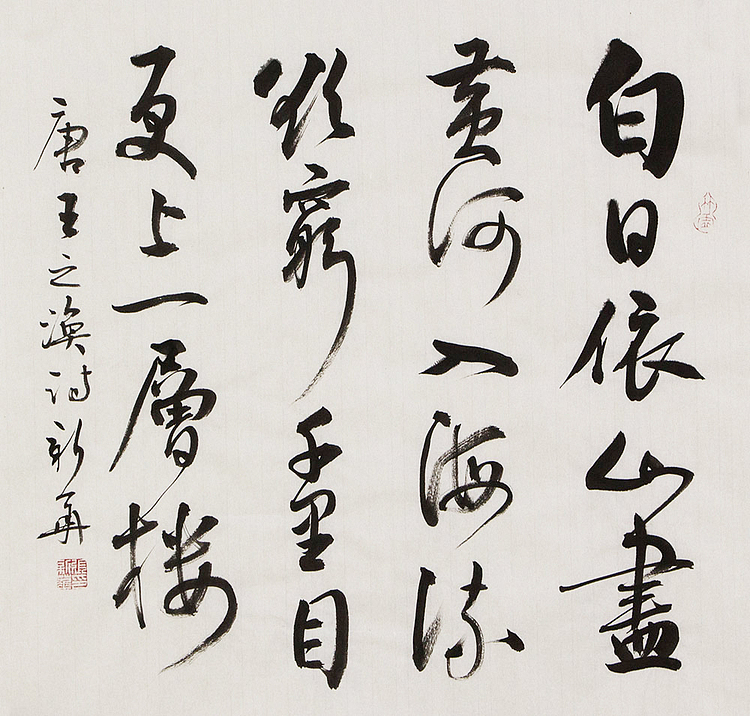 白日依山盡
黄河入海流
欲窮千里目
更上一層楼
唐王之渙詩新再